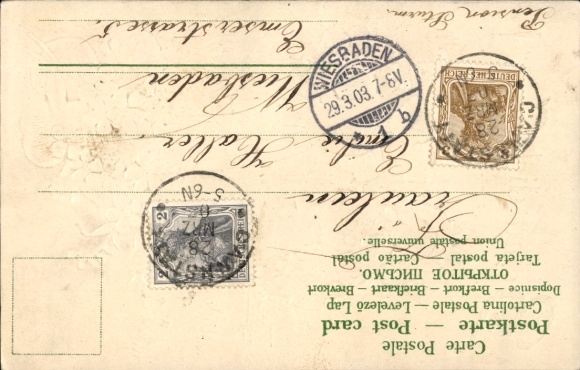 Carte Postale
Postkarte — Post card
Cartolina Postale — Levelező Lap
Dopisnice — Brefkort — Briefkaart — Brevkort
ОТКРЫТОЕ ПИСЬМО
Tarjeta postal Cartão postal
Union postale universelle.
Fräulein
Emilie Haller
Wiesbaden
Emserstrasse 5.
Pension Sturm.
WIESBADEN
29.3.03. 7-8V.
* 1 b
DEUTSCHES REICH
28
2
2
28
MRZ
5-6N